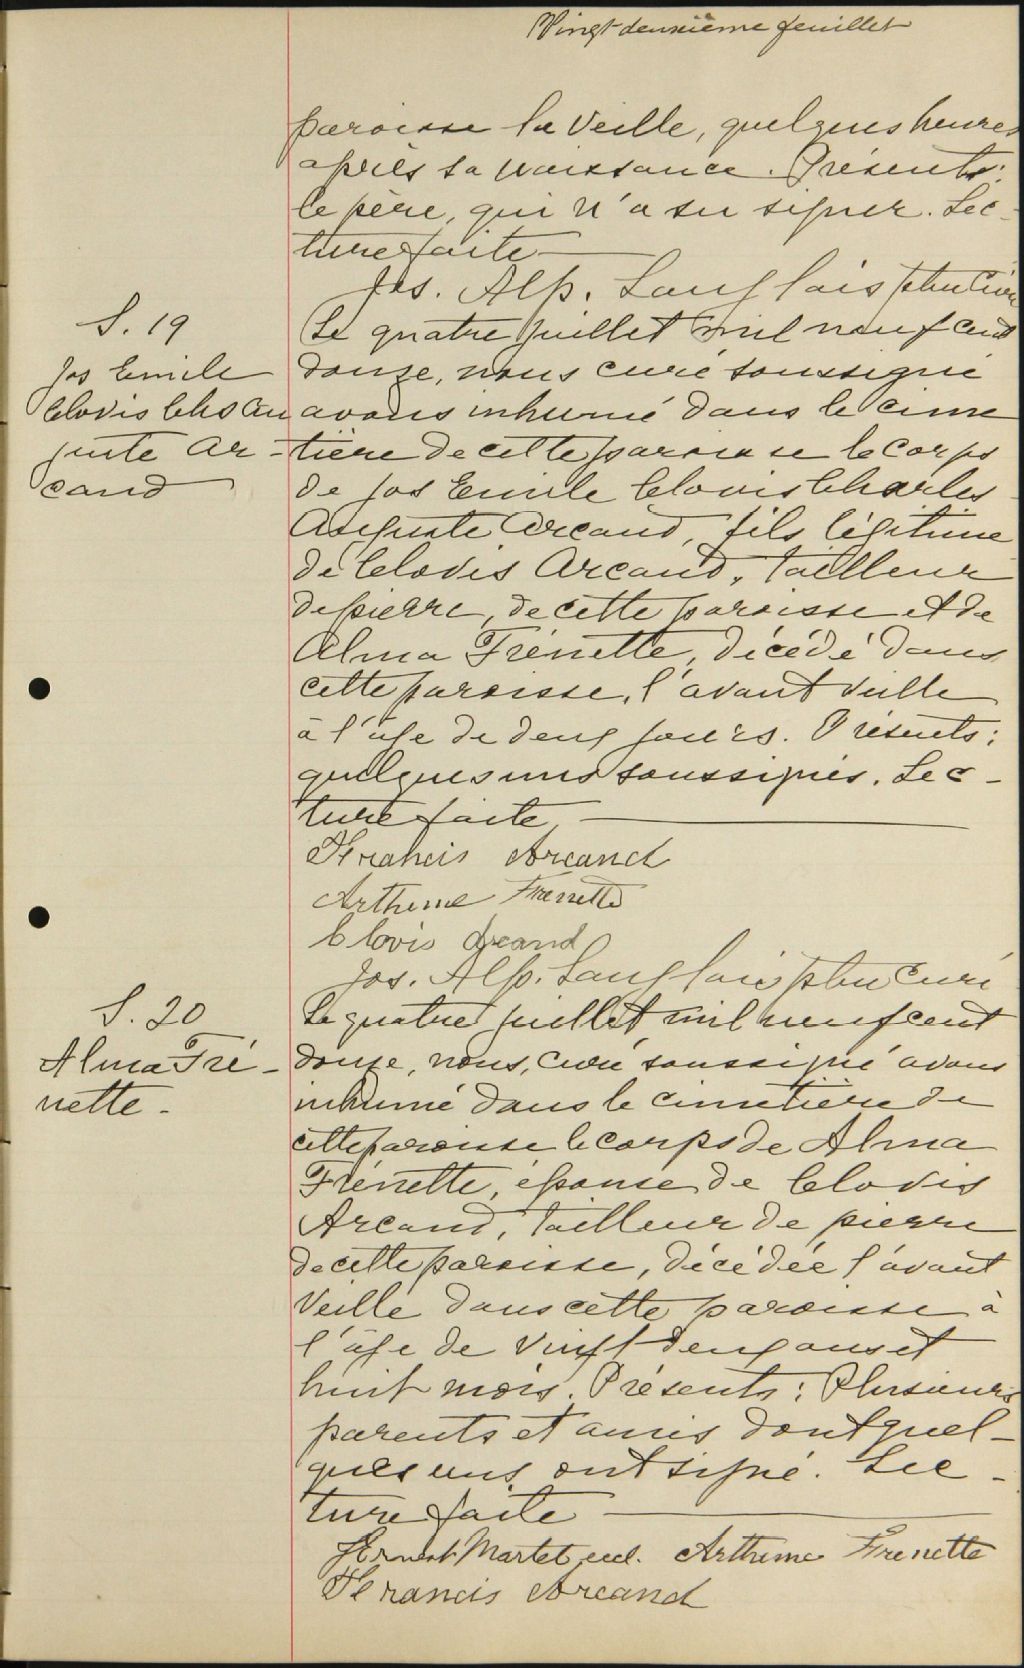 Vingt deuxième feuillet
paroisse la veille, quelques heures
après sa naissance. Présents:
le père, qui n'a su signer. Lec-
ture faite
Jos. Alp. Langlois ptre Curé
S. 19
Jos Emile
Clovis Chs Au
guste Ar-
cand
Le quatre juillet mil neuf cent
douze, nous curé soussigné
avons inhumé dans le cime
tière de cette paroisse le corps
de Jos Emile Clovis Charles
Auguste Arcand, fils légitime
de Clovis Arcand, tailleur
de pierre, de cette paroisse et de
Alma Frénette, décédé dans
cette paroisse, l'avant veille
à l'âge de deux jours. Présents:
quelques uns soussignés. Lec-
ture faite
Francis Arcand
Arthème Frenette
Clovis Arcand
Jos. Alp. Langlois ptre Curé
S. 20
Alma Fré-
nette-
Le quatre juillet mil neuf cent
douze, nous, curé soussigné avons
inhumé dans le cimetière de
cette paroisse le corps de Alma
Frénette, épouse de Clovis
Arcand, tailleur de pierre
de cette paroisse, décédée l'avant
veille dans cette paroisse à
l'âge de vingt deux ans et
huit mois. Présents: Plusieurs
parents et amis dont quel-
ques uns ont signé. Lec-
ture faite
Ernest Martel, eccl. Arthème Frenette
Francis Arcand